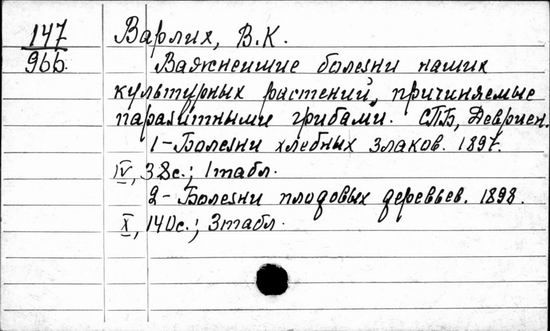 147
96б.
Варлих, В.К.
Важнейшие болезни наших
культурных растений, причиняемые
паразитными грибами. СПБ, Девриен.
1-Болезни хлебных злаков. 1897.
IV, 38с.; 1табл.
2-Болезни плодовых деревьев. 1898.
X, 140с.; 3табл.